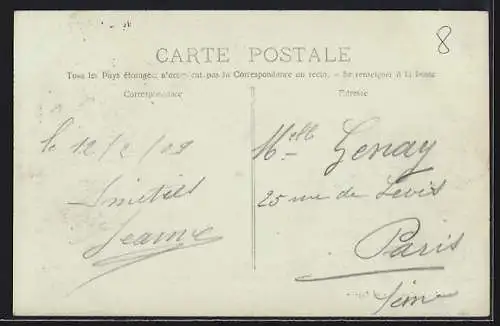 8
CARTE POSTALE
Tous les Pays étrangers n'acceptent pas la Correspondance au recto. - Se renseigner à la Poste
Correspondance
Adresse
le 12/2/09
Amitiés
Jeanne
Melle Genay
25 rue de Levis
Paris